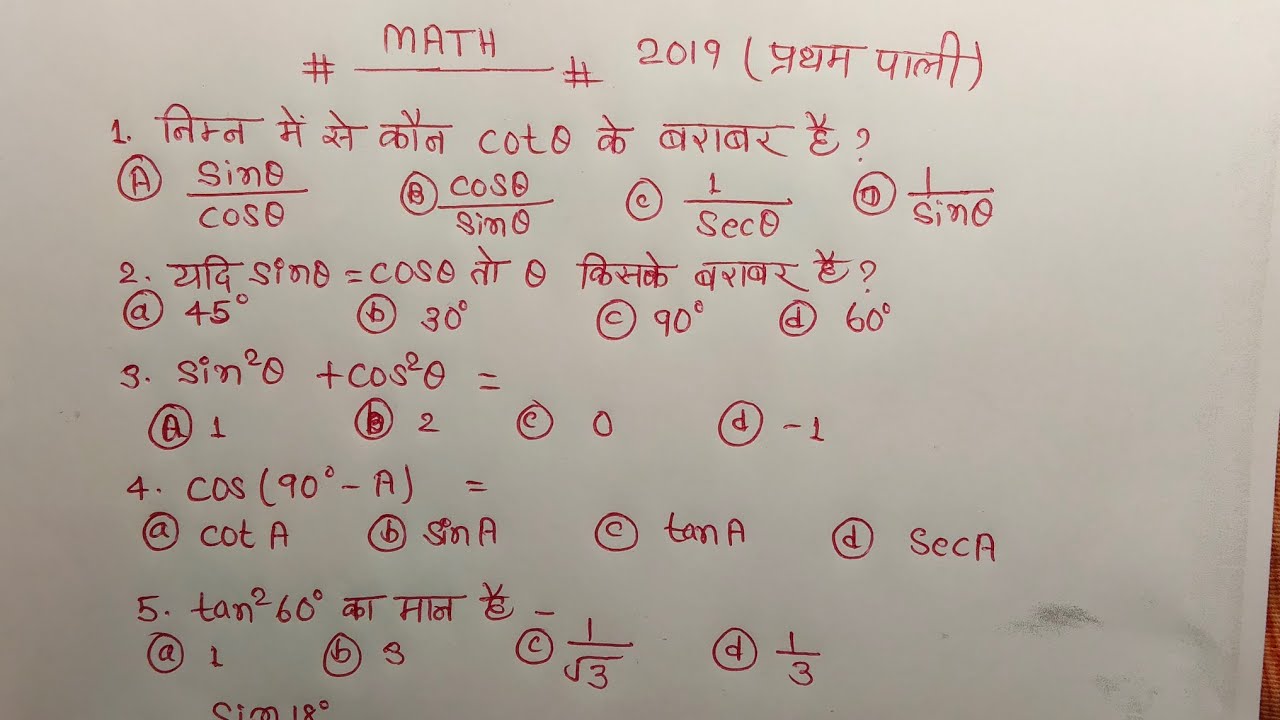 # MATH # 2019 (प्रथम पाली)
1. निम्न में से कौन cotθ के बराबर है ?
(A) sinθ/cosθ (B) cosθ/sinθ (C) 1/secθ (D) 1/sinθ
2. यदि sinθ = cosθ तो θ किसके बराबर है ?
(a) 45° (b) 30° (c) 90° (d) 60°
3. sin²θ + cos²θ =
(A) 1 (B) 2 (c) 0 (d) -1
4. cos (90° - A) =
(a) cot A (b) sin A (c) tan A (d) sec A
5. tan²60° का मान है -
(a) 1 (b) 3 (c) 1/√3 (d) 1/3
sin 18°